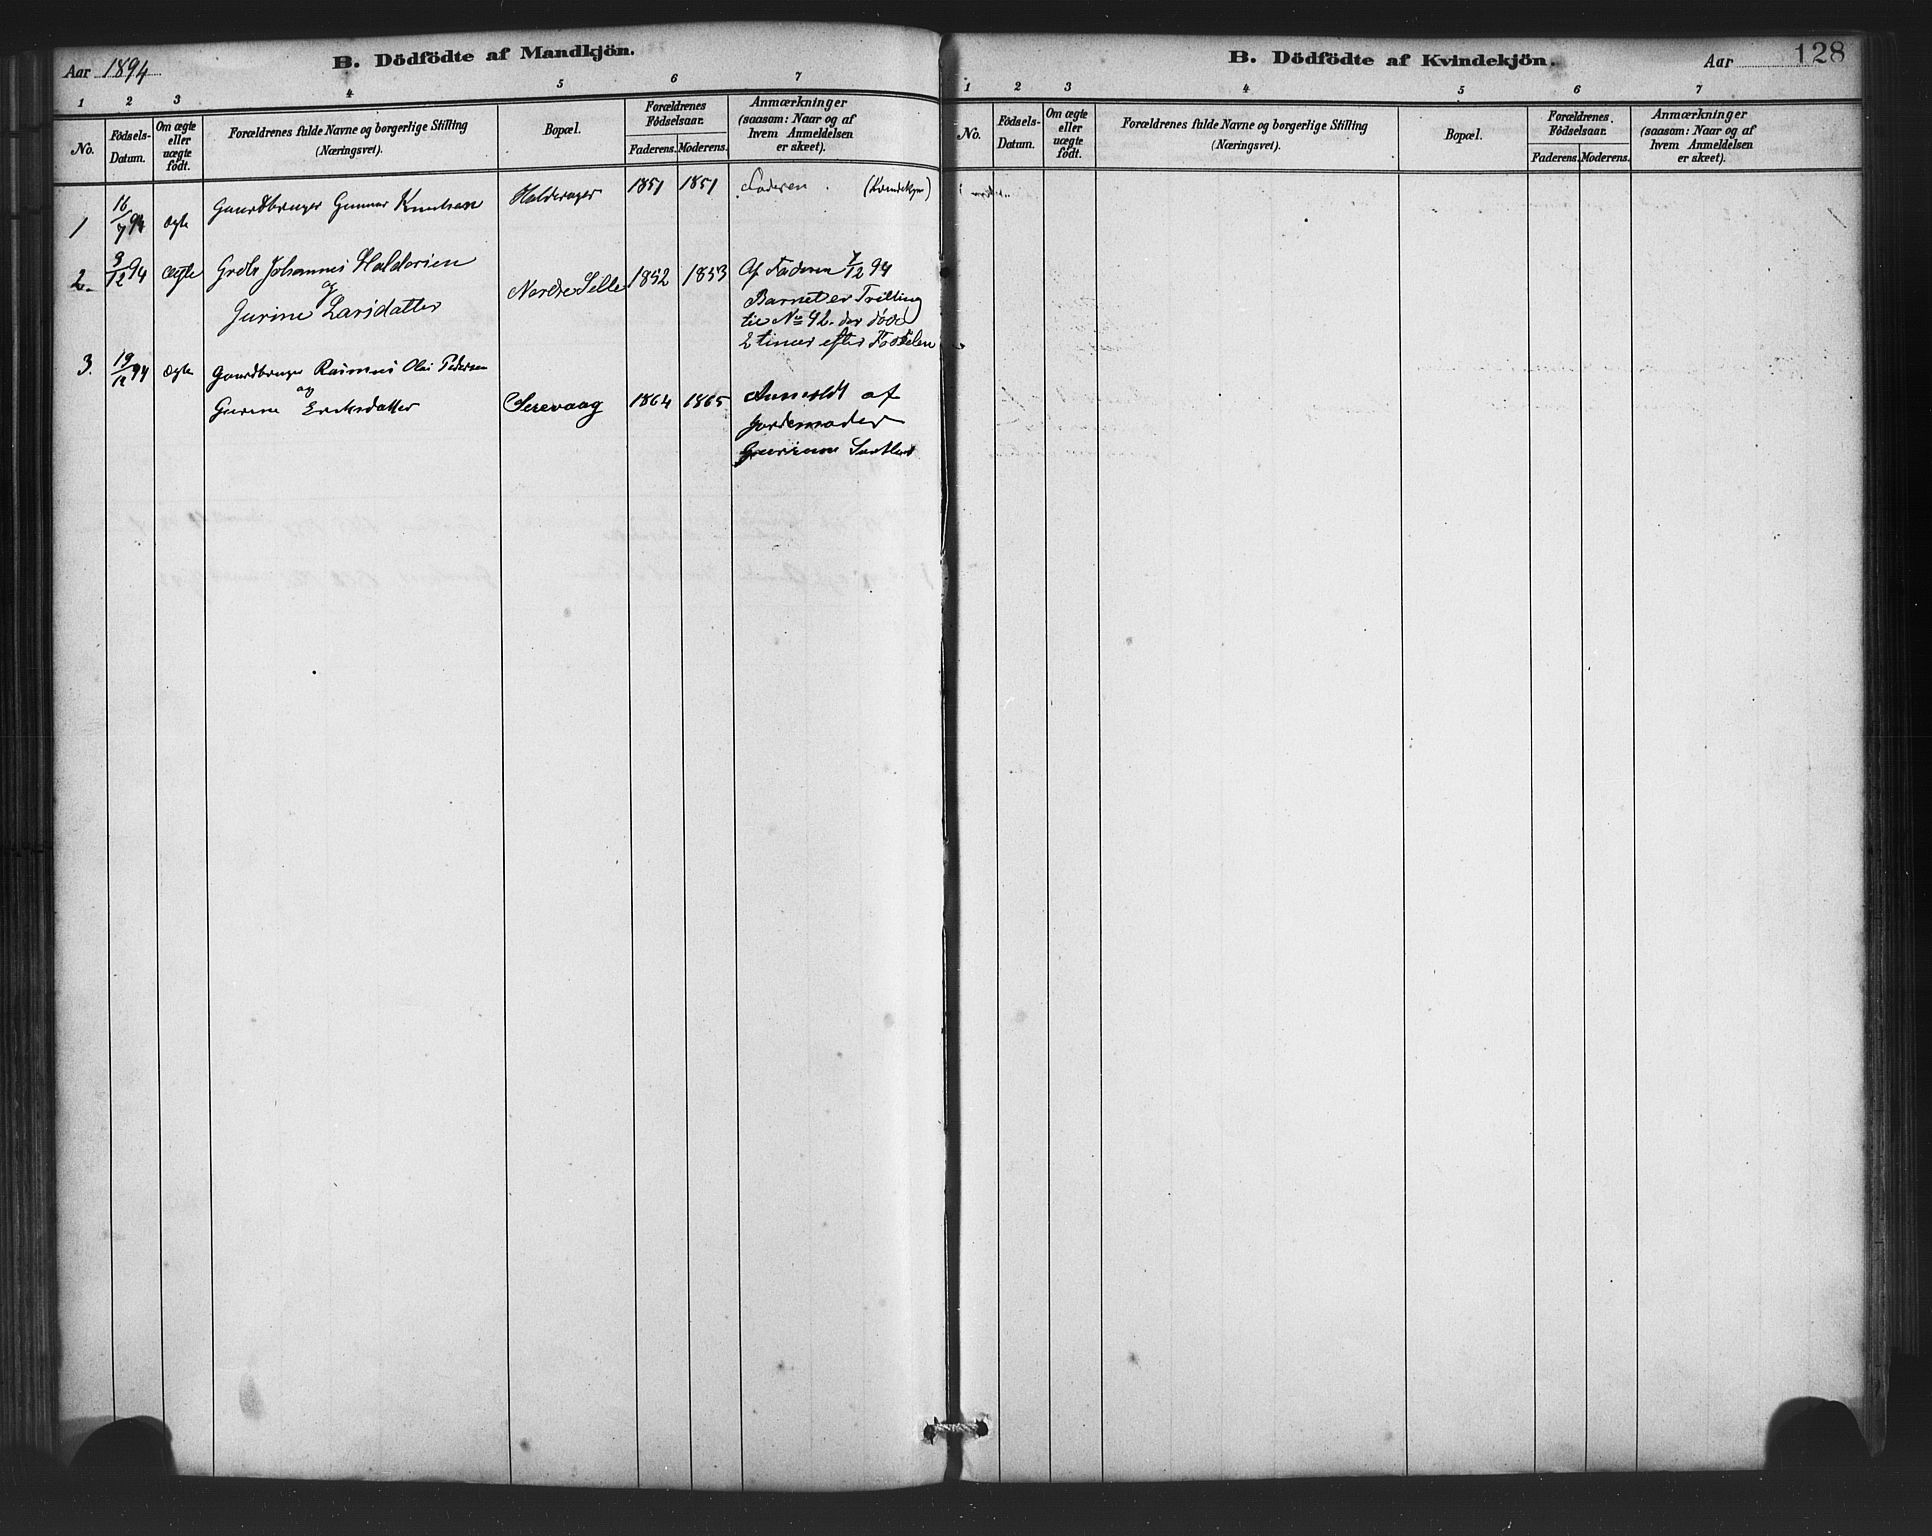 Aar 1894
B. Dödfödte af Mandkjön.
1 2 3 4 5 6 7
No.
Födsels-Datum.
Om ægte eller uægte födt.
Forældrenes fulde Navne og borgerlige Stilling
(Næringsvei).
Bopæl.
Forældrenes Födselsaar.
Faderens. Moderens.
Anmærkninger
(saasom: Naar og af
hvem Anmeldelsen
er skeet).
1 16/7 94 ægte Gaardbruger Gunnar Knudsen Halderager 1851 1851 Faderen. (Kvindekjøn)
2. 3/12 94 Ægte Grdbr Johannes Haldorsen
og
Gurine Larsdatter
Nordre Selle 1852 1853 Af Faderen 7/12 94
Barnet er Trilling
til No 42. der døde
2 timer efter Fødselen
3. 19/12 94 ægte Gaardbruger Rasmus Olai Pedersen
og
Gurine Eriksdatter
Serevaag 1864 1865 Anmeldt af
Jordemoder
Gurianne
128
B. Dödfödte af Kvindekjön.
Aar
1 2 3 4 5 6 7
No.
Födsels-Datum.
Om ægte eller uægte födt.
Forældrenes fulde Navne og borgerlige Stilling
(Næringsvei).
Bopæl.
Forældrenes Födselsaar.
Faderens. Moderens.
Anmærkninger
(saasom: Naar og af
hvem Anmeldelsen
er skeet).